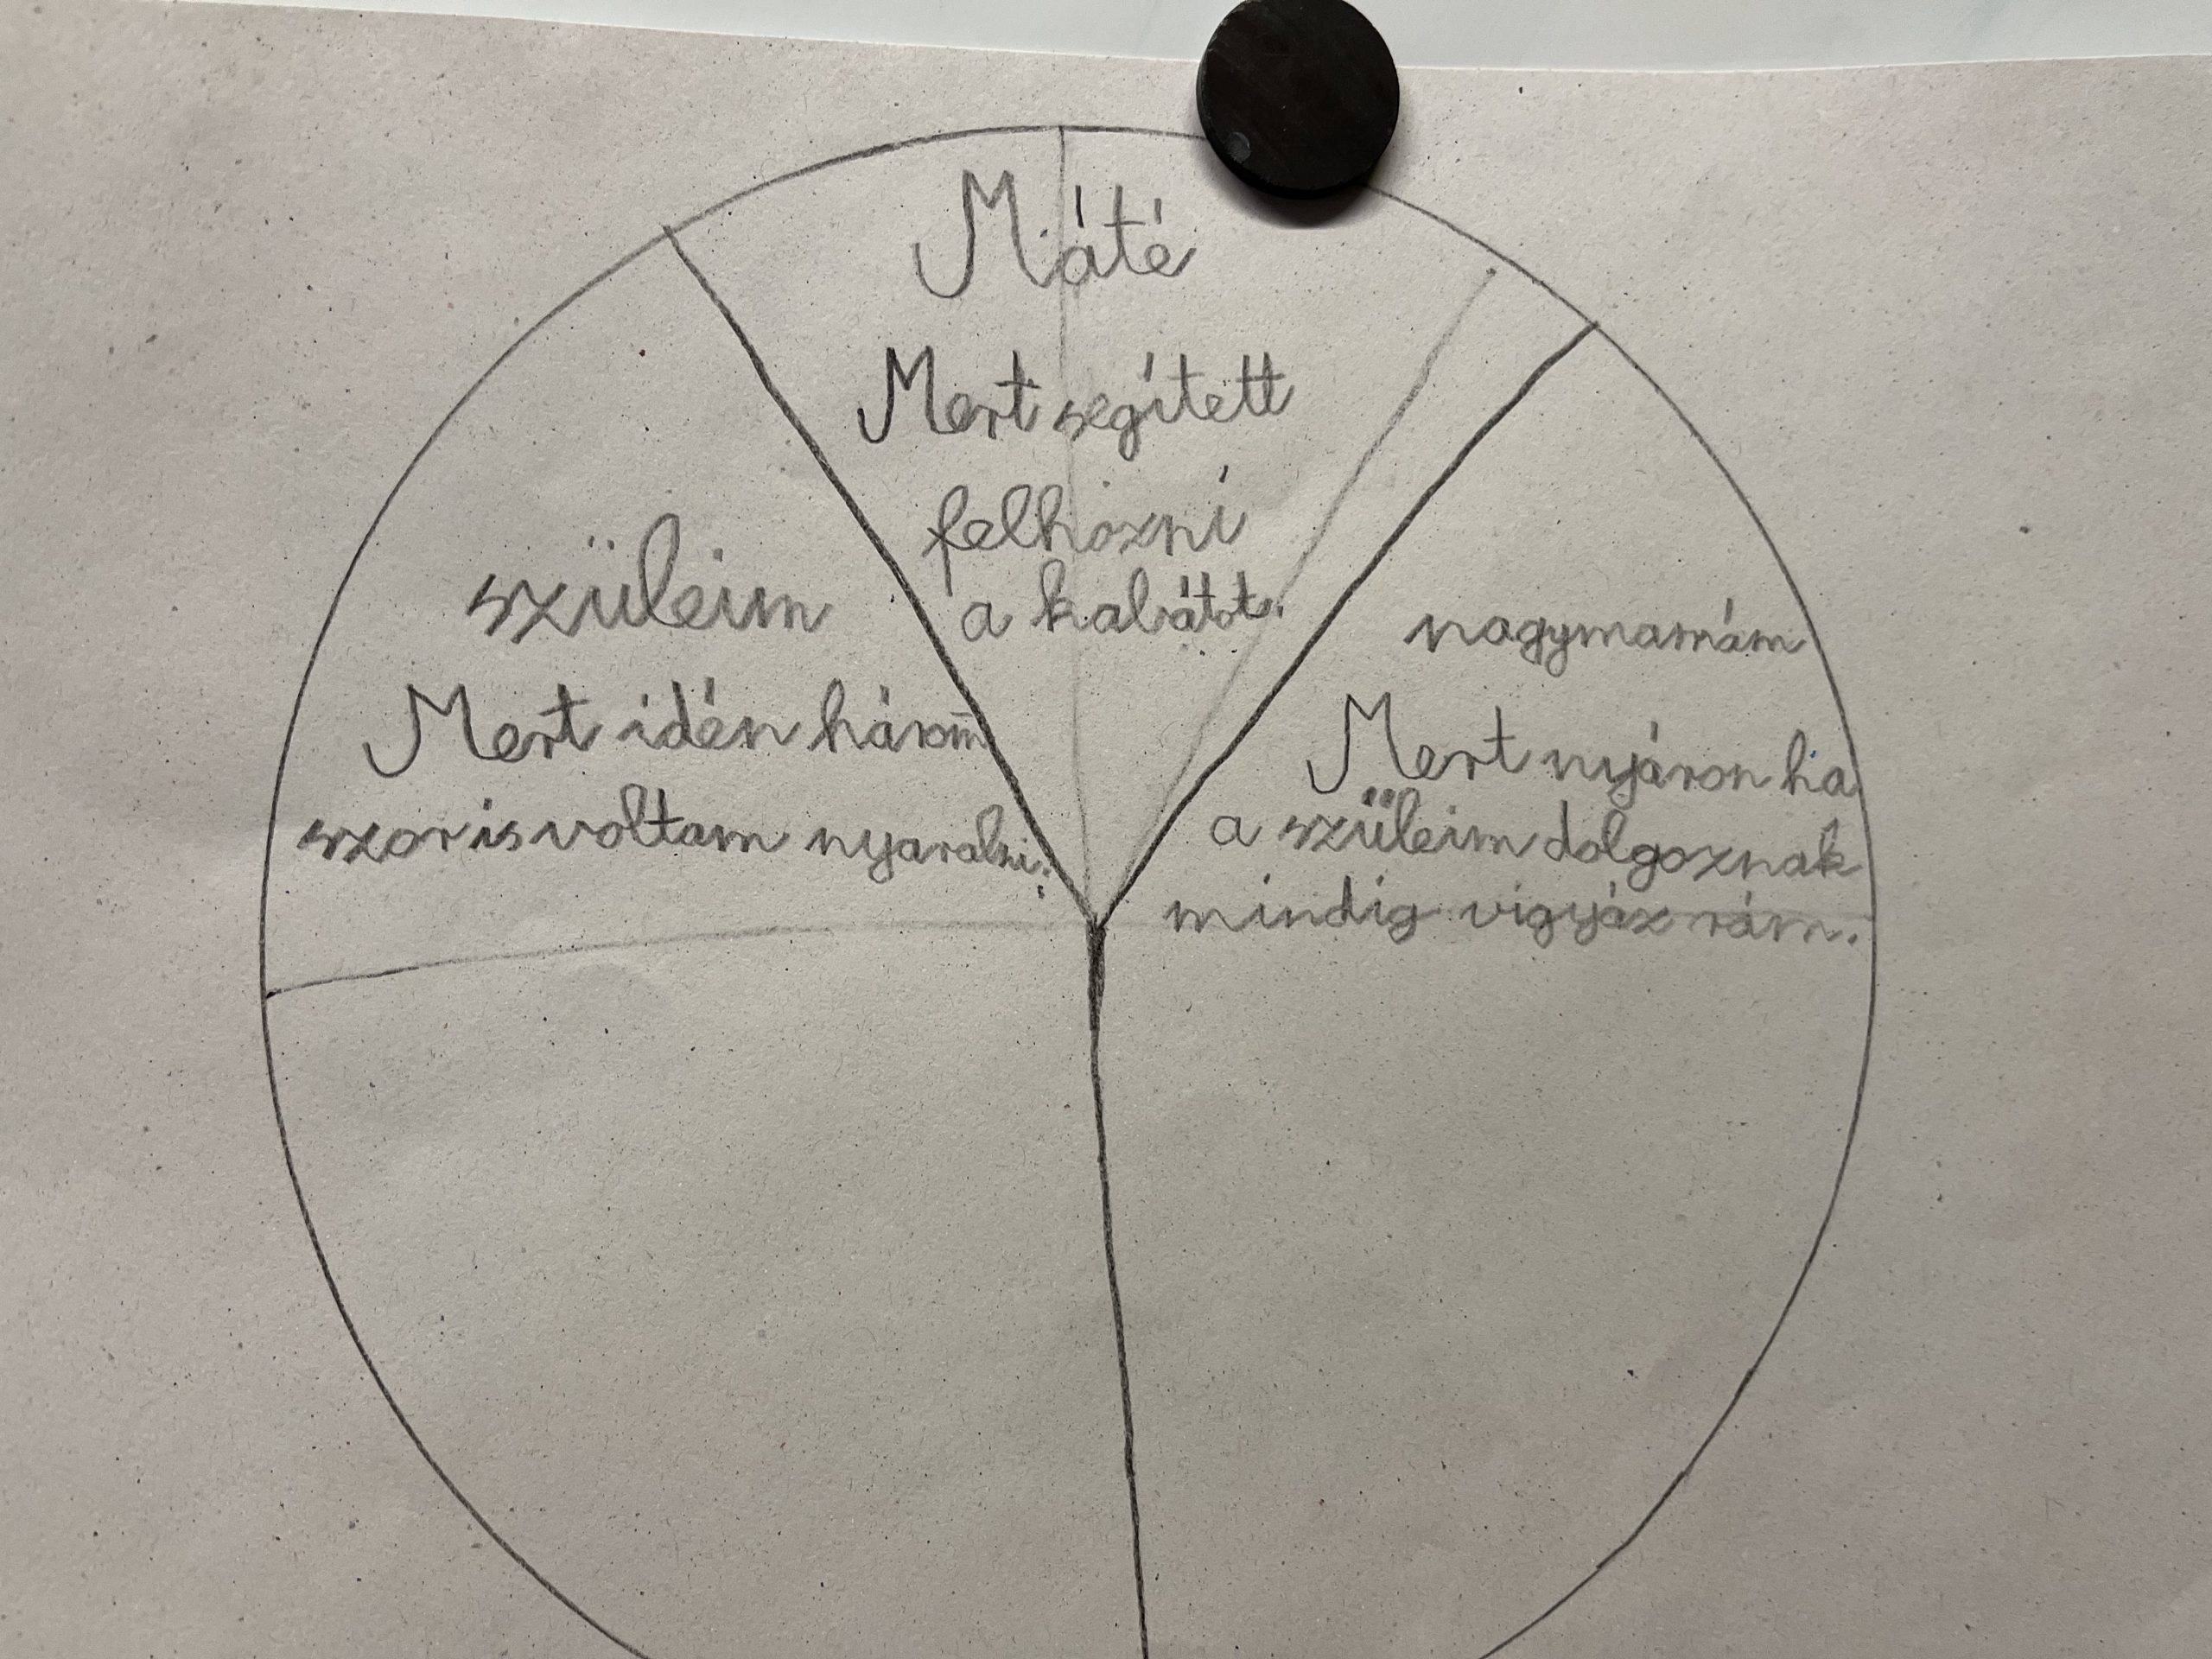 Máté
Mert segített
felhozni
a kabátot.
szüleim
Mert idén három
szor is voltam nyaralni.
nagymamám
Mert nyáron ha
a szüleim dolgoznak
mindig vigyáz rám.